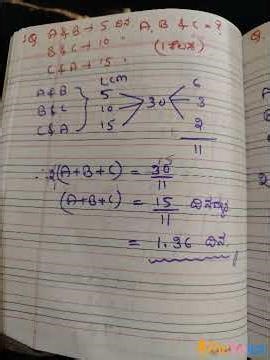 1Q A&B → 5 ದಿನ A, B & C = ?
B & C → 10 "
C & A → 15 "
LCM
A & B 5 6
B & C 10 30 3
C & A 15 2
11
∴ 2(A+B+C) = 30/11
(A+B+C) = 15/11
= 1.36 ದಿನ